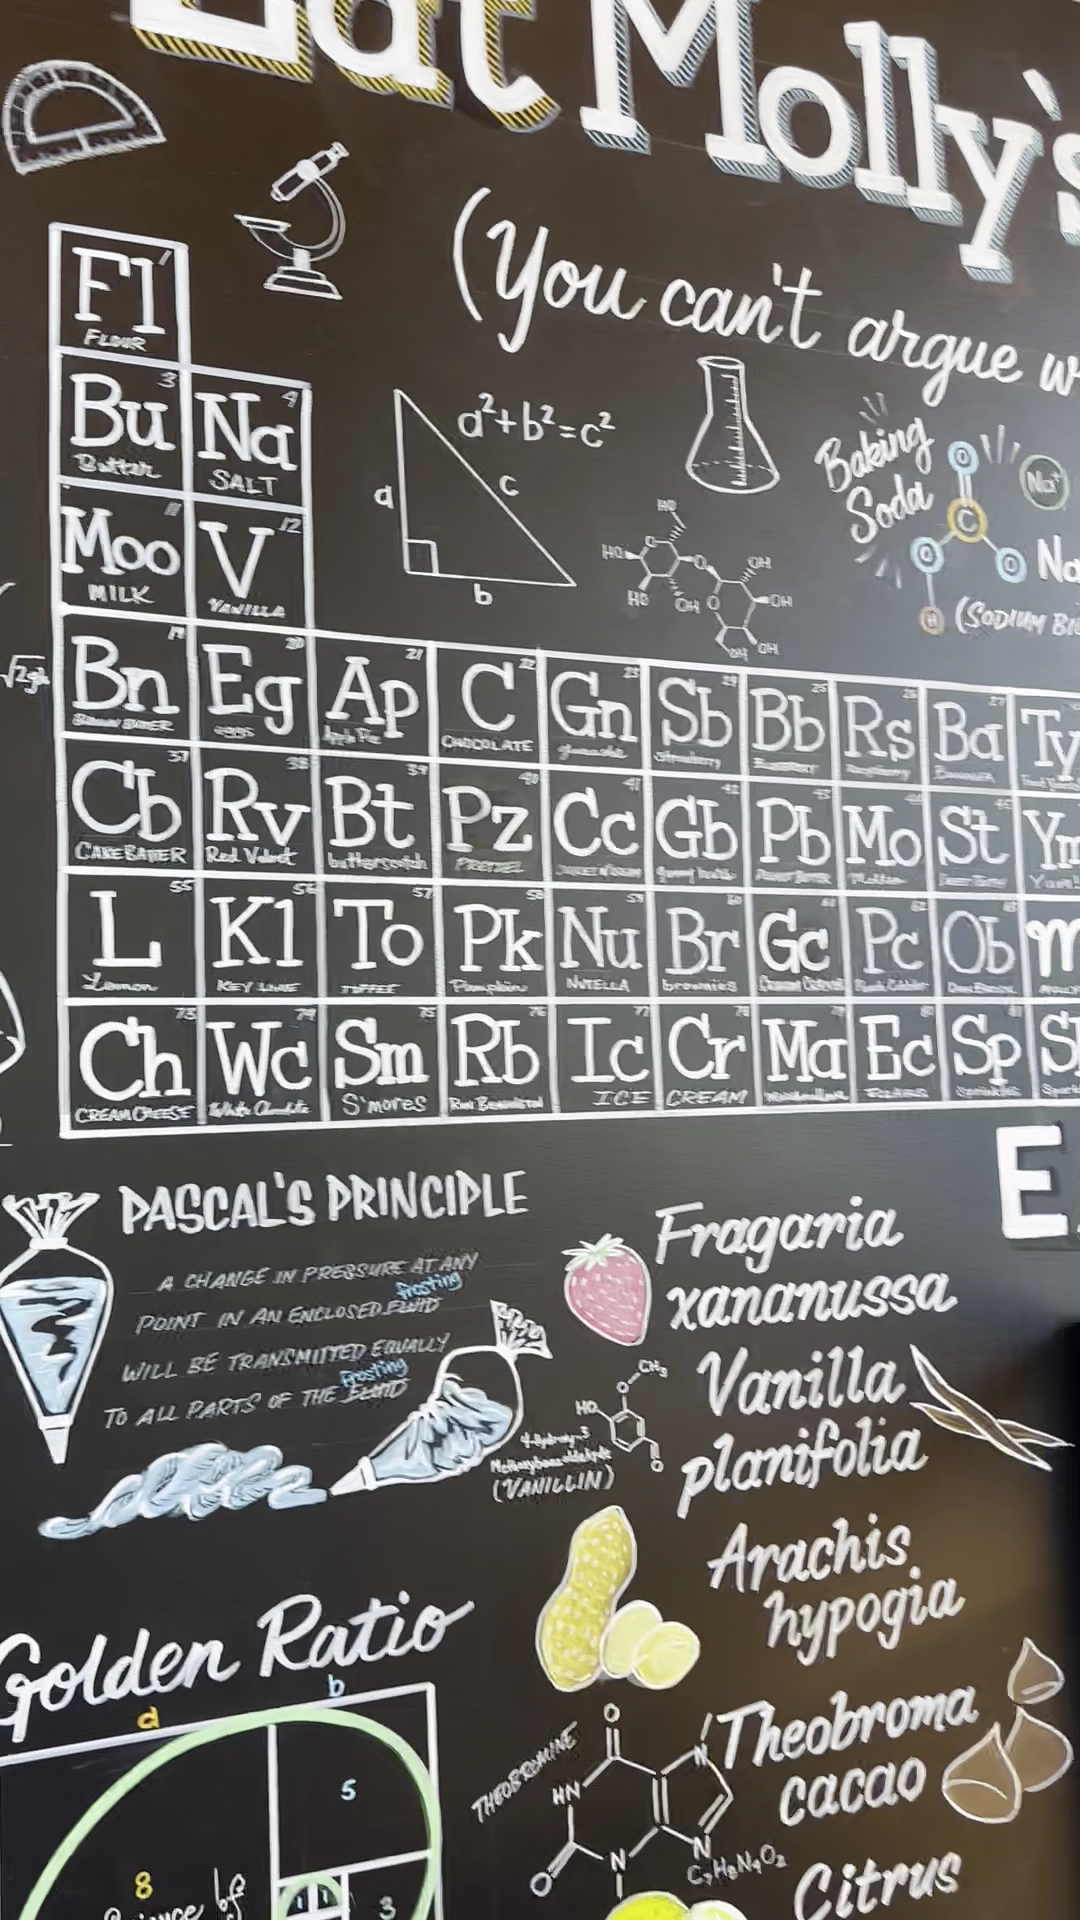 Eat Molly's
(You can't argue w
Fl 1 FLOUR
Bu 3 Butter
Na 4 SALT
a²+b²=c²
a
c
b
Baking
Soda
Na⁺
O
C
O
O
H
Na
(SODIUM BI
HO
HO
O
O
OH
HO
OH
O
OH
OH
OH
Moo 11 MILK
V 12 VANILLA
√2gh
Bn 19
Eg 20 eggs
Ap 21 Apple Pie
C 22 CHOCOLATE
Gn 23 ganache
Sb Strawberry
Bb 25
Rs 26 Raspberry
Ba 27
Ty
Cb 37 CAKE BATTER
Rv 38 Red Velvet
Bt 39 butterscotch
Pz 40 PRETZEL
Cc 41
Gb 42
Pb PEANUT BUTTER
Mo
St
Ym
L 55 Lemon
Kl 56 KEY LIME
To 57 TOFFEE
Pk 58 Pumpkin
Nu 59 NUTELLA
Br 60 brownies
Gc 61
Pc 62
Ob 63
m
Ch 73 CREAM CHEESE
Wc 74 White Chocolate
Sm 75 S'mores
Rb 76
Ic 77 ICE
Cr 78 CREAM
Ma 79
Ec 80
Sp 81 Sprinkles
E
PASCAL'S PRINCIPLE
A CHANGE IN PRESSURE AT ANY
frosting
POINT IN AN ENCLOSED FLUID
WILL BE TRANSMITTED EQUALLY
frosting
TO ALL PARTS OF THE FLUID
Fragaria
xananussa
Vanilla
planifolia
CH₃
O
HO
O
(VANILLIN)
Arachis
hypogia
Golden Ratio
a
b
5
8
1 1
3
THEOBROMINE
O
HN
N
N
N
O
C₇H₈N₄O₂
Theobroma
cacao
Citrus